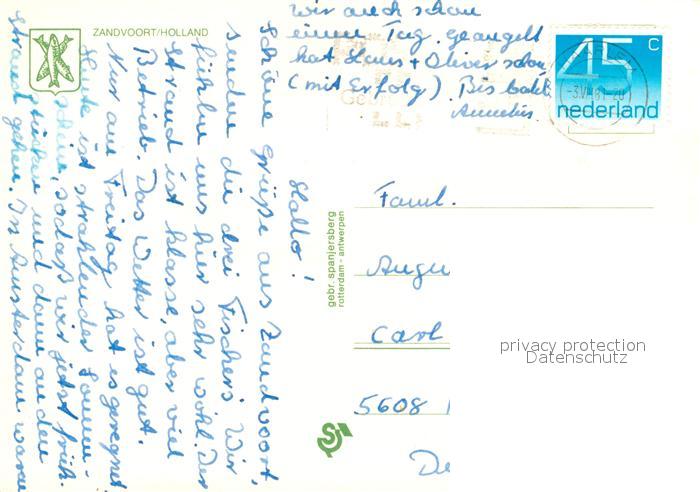 ZANDVOORT/HOLLAND
Hallo!
Schöne Grüße aus Zandvoort,
senden die drei Fischers. Wir
fühlen uns hier sehr wohl. Der
Strand ist klasse, aber viel
Betrieb. Das Wetter ist gut.
Nur am Freitag hat es geregnet.
Heute ist strahlender Sonnen-
schein, sodaß wir jetzt früh-
stücken und dann an den
Strand gehen. In Amsterdam waren
wir auch schon
einen Tag. Geangelt
hat Hans + Oliver schon
(mit Erfolg) Bis bald
Annelies
45 c
nederland
gebr. spanjersberg
rotterdam - antwerpen
Faml.
Augu
Carl
5608
privacy protection
Datenschutz